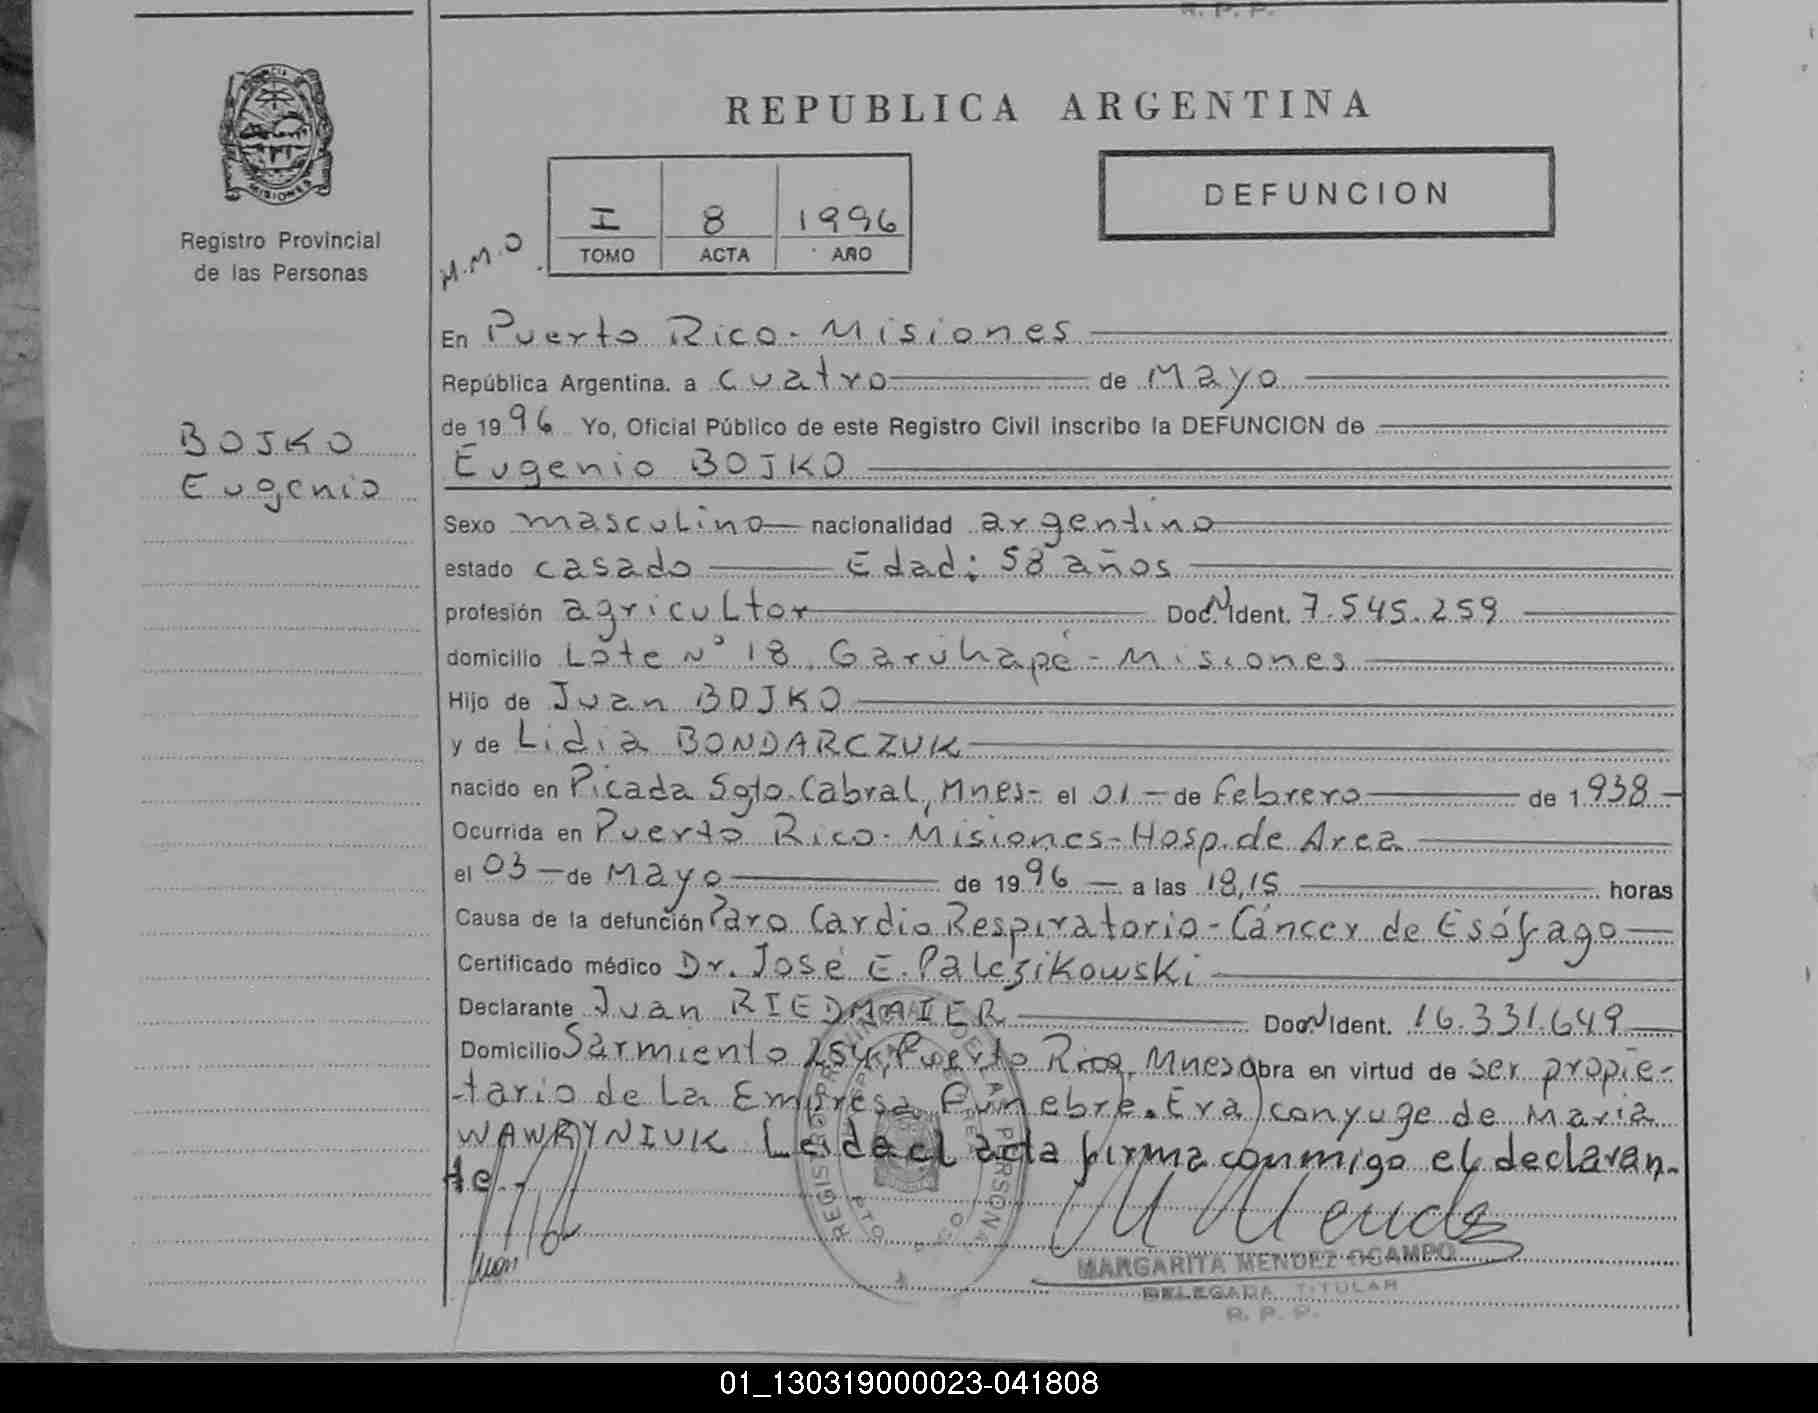 R. P. P.
REPUBLICA ARGENTINA
PROVINCIA DE
MISIONES
Registro Provincial
de las Personas
I 8 1996
TOMO ACTA AÑO
DEFUNCION
M.M.O.
En Puerto Rico - Misiones
República Argentina. a cuatro de Mayo
de 1996 Yo, Oficial Público de este Registro Civil inscribo la DEFUNCION de
BOJKO
Eugenio
Eugenio BOJKO
Sexo masculino nacionalidad argentino
estado casado Edad: 58 años
profesión agricultor Doc. N Ident. 7.545.259
domicilio Lote N° 18, Garuhapé - Misiones
Hijo de Juan BOJKO
y de Lidia BONDARCZUK
nacido en Picada Sgto. Cabral, Mnes- el 01 - de Febrero de 1938 -
Ocurrida en Puerto Rico - Misiones - Hosp. de Area
el 03 - de Mayo de 1996 - a las 18,15 horas
Causa de la defunción Paro Cardio Respiratorio - Cáncer de Esófago
Certificado médico Dr. José E. Palczikowski
Declarante Juan RIEDMAIER Doc. N Ident. 16.331.649
Domicilio Sarmiento Puerto Rico, Mnes Obra en virtud de ser propie-
-tario de La Empresa Funebre. Era conyuge de Maria
WAWRYNIUK Leida el acta firma conmigo el declaran-
te.-
REGISTRO PROVINCIAL DE LAS PERSONAS
M Mendez
MARGARITA MENDEZ OCAMPO
DELEGADA TITULAR
R. P. P.
01_130319000023-041808